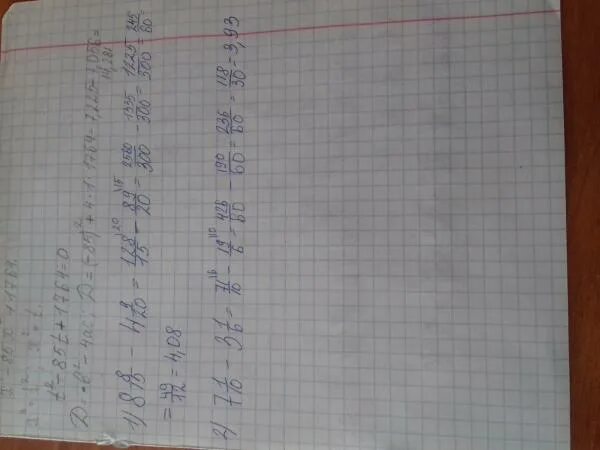 t² - 85t + 1764 = 0
D = b² - 4ac; D = (-85)² + 4·1·1764 = 7225 - 7056 =
1) 8 8/15 - 4 9/20 = 128/15 - 89/20 = 2560/300 - 1335/300 = 1225/300 = 245/60 =
= 49/12 = 4,08
2) 7 1/10 - 3 1/6 = 71/10 - 19/6 = 426/60 - 190/60 = 236/60 = 118/30 = 3,93